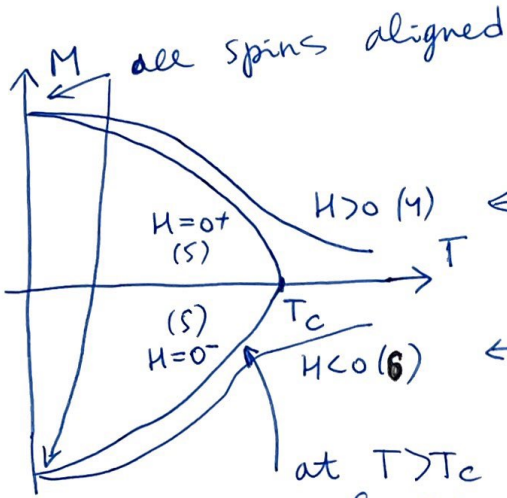 M all spins aligned
H>0 (4)
H=0+
(5)
T
(5)
Tc
H=0-
H<0 (6)
at T>Tc